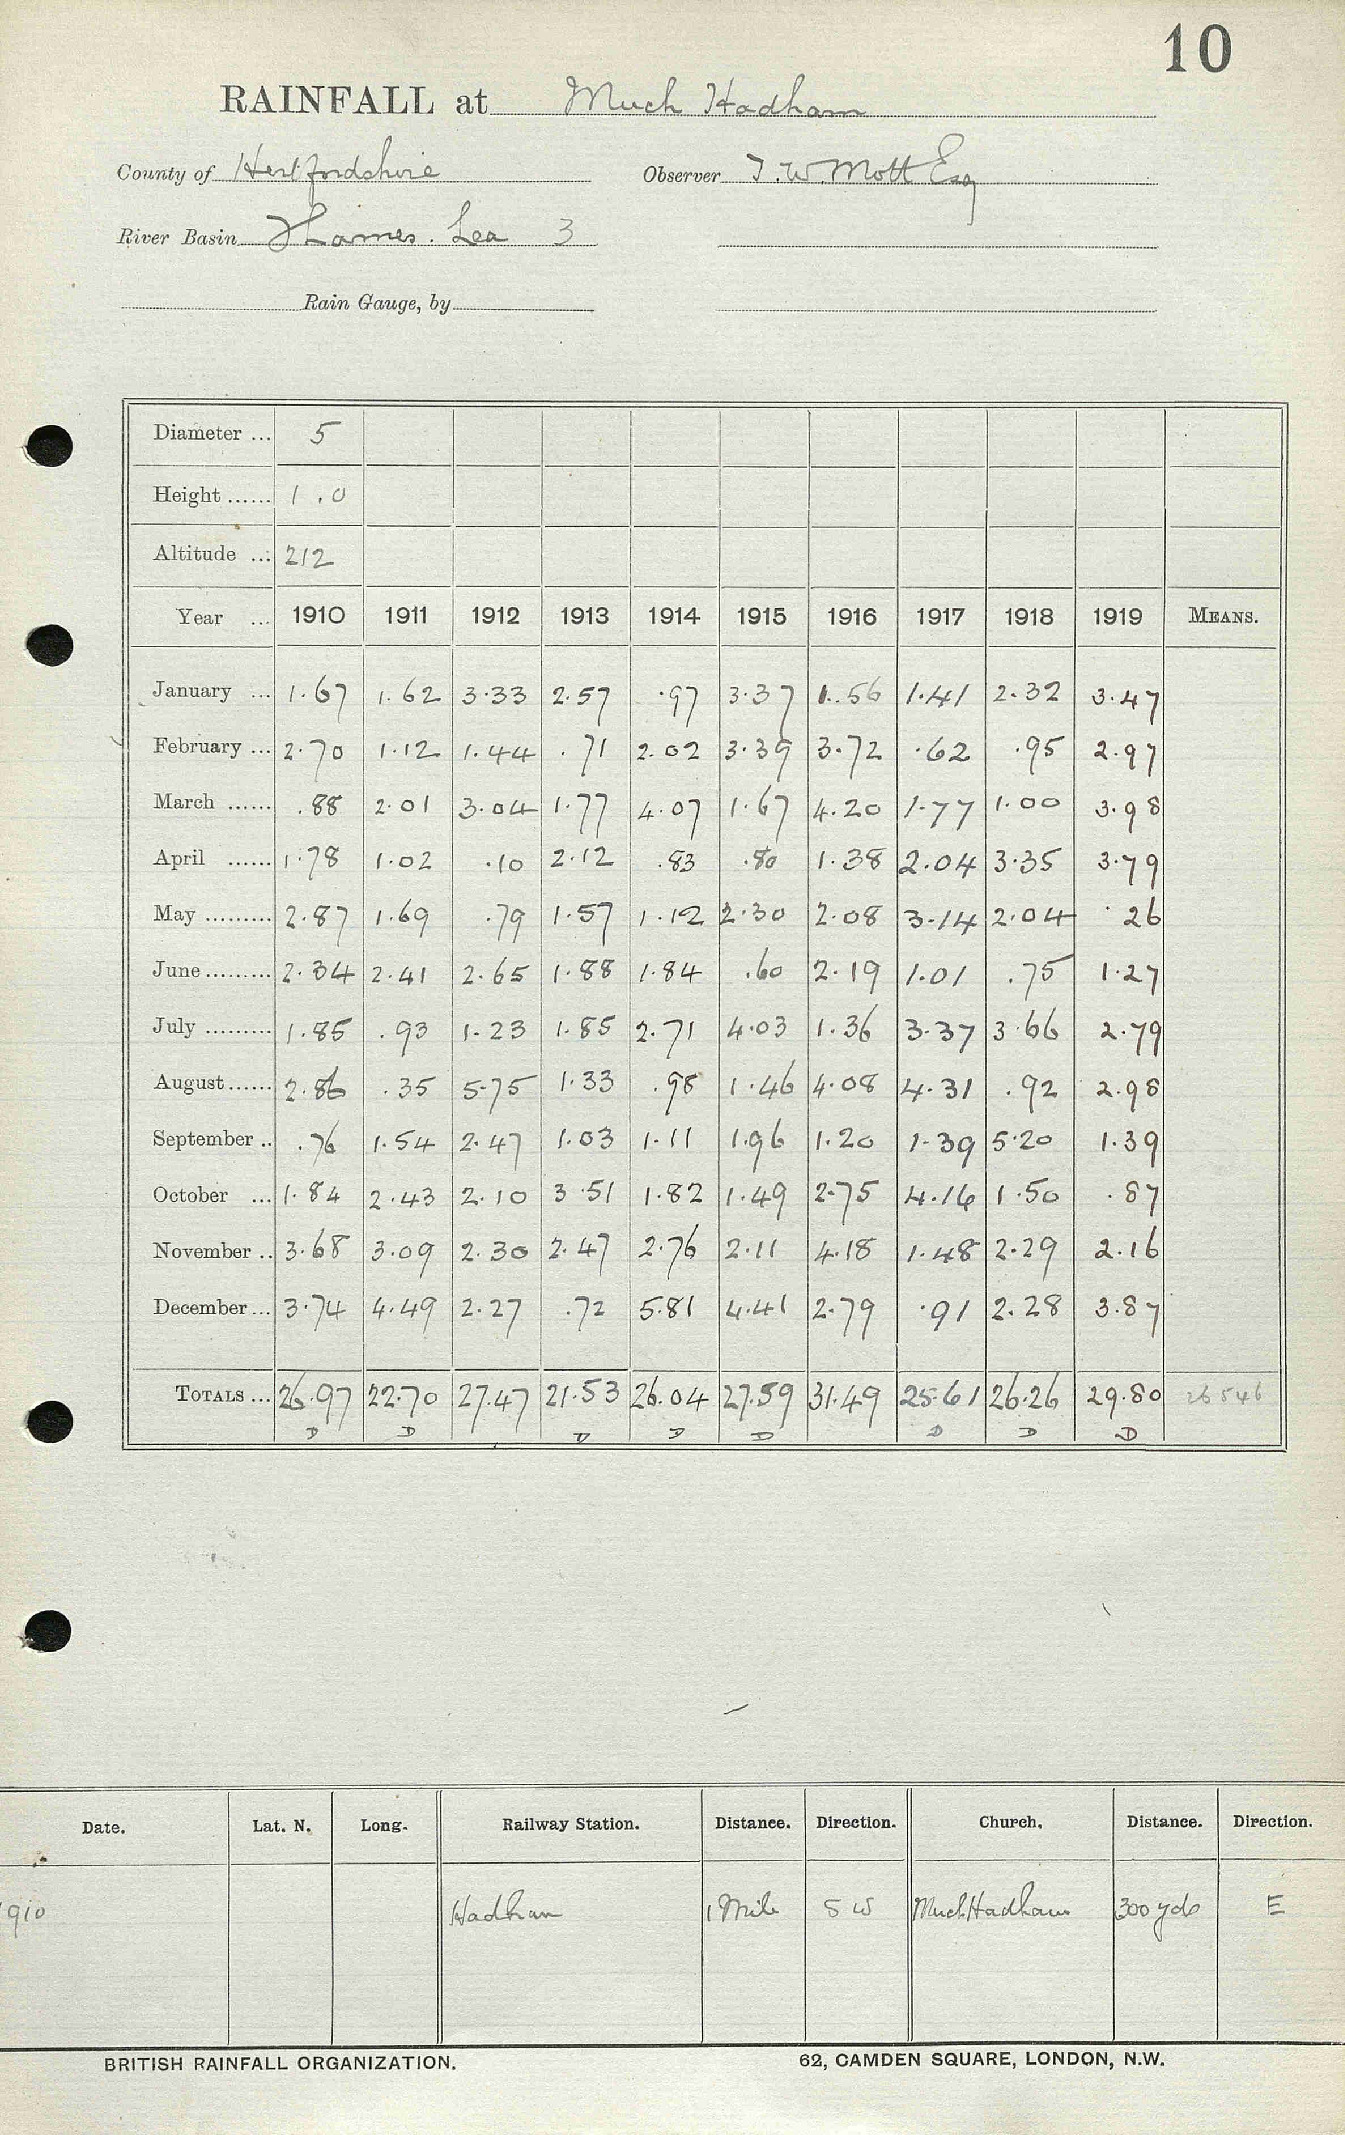 10
RAINFALL at Much Hadham
County of Hertfordshire Observer T.W. Mott Esq
River Basin Thames. Lea 3
Rain Gauge, by
Diameter ... 5
Height ...... 1.0
Altitude ... 212
Year ... 1910 1911 1912 1913 1914 1915 1916 1917 1918 1919 MEANS.
January ... 1.67 1.62 3.33 2.57 .97 3.37 1.56 1.41 2.32 3.47
February ... 2.70 1.12 1.44 .71 2.02 3.39 3.72 .62 .95 2.97
March ...... .88 2.01 3.04 1.77 4.07 1.67 4.20 1.77 1.00 3.98
April ...... 1.78 1.02 .10 2.12 .83 .80 1.38 2.04 3.35 3.79
May ......... 2.87 1.69 .79 1.57 1.12 2.30 2.08 3.14 2.04 .26
June ......... 2.34 2.41 2.65 1.88 1.84 .60 2.19 1.01 .75 1.27
July ......... 1.85 .93 1.23 1.85 2.71 4.03 1.36 3.37 3.66 2.79
August ...... 2.86 .35 5.75 1.33 .98 1.46 4.08 4.31 .92 2.98
September .. .76 1.54 2.47 1.03 1.11 1.96 1.20 1.39 5.20 1.39
October ... 1.84 2.43 2.10 3.51 1.82 1.49 2.75 4.16 1.50 .87
November .. 3.68 3.09 2.30 2.47 2.76 2.11 4.18 1.48 2.29 2.16
December ... 3.74 4.49 2.27 .72 5.81 4.41 2.79 .91 2.28 3.87
TOTALS ... 26.97 22.70 27.47 21.53 26.04 27.59 31.49 25.61 26.26 29.80 26 546
D D D D D D D D
Date. Lat. N. Long. Railway Station. Distance. Direction. Church. Distance. Direction.
1910 Hadham 1 Mile SW Much Hadham 300 yds E
BRITISH RAINFALL ORGANIZATION. 62, CAMDEN SQUARE, LONDON, N.W.